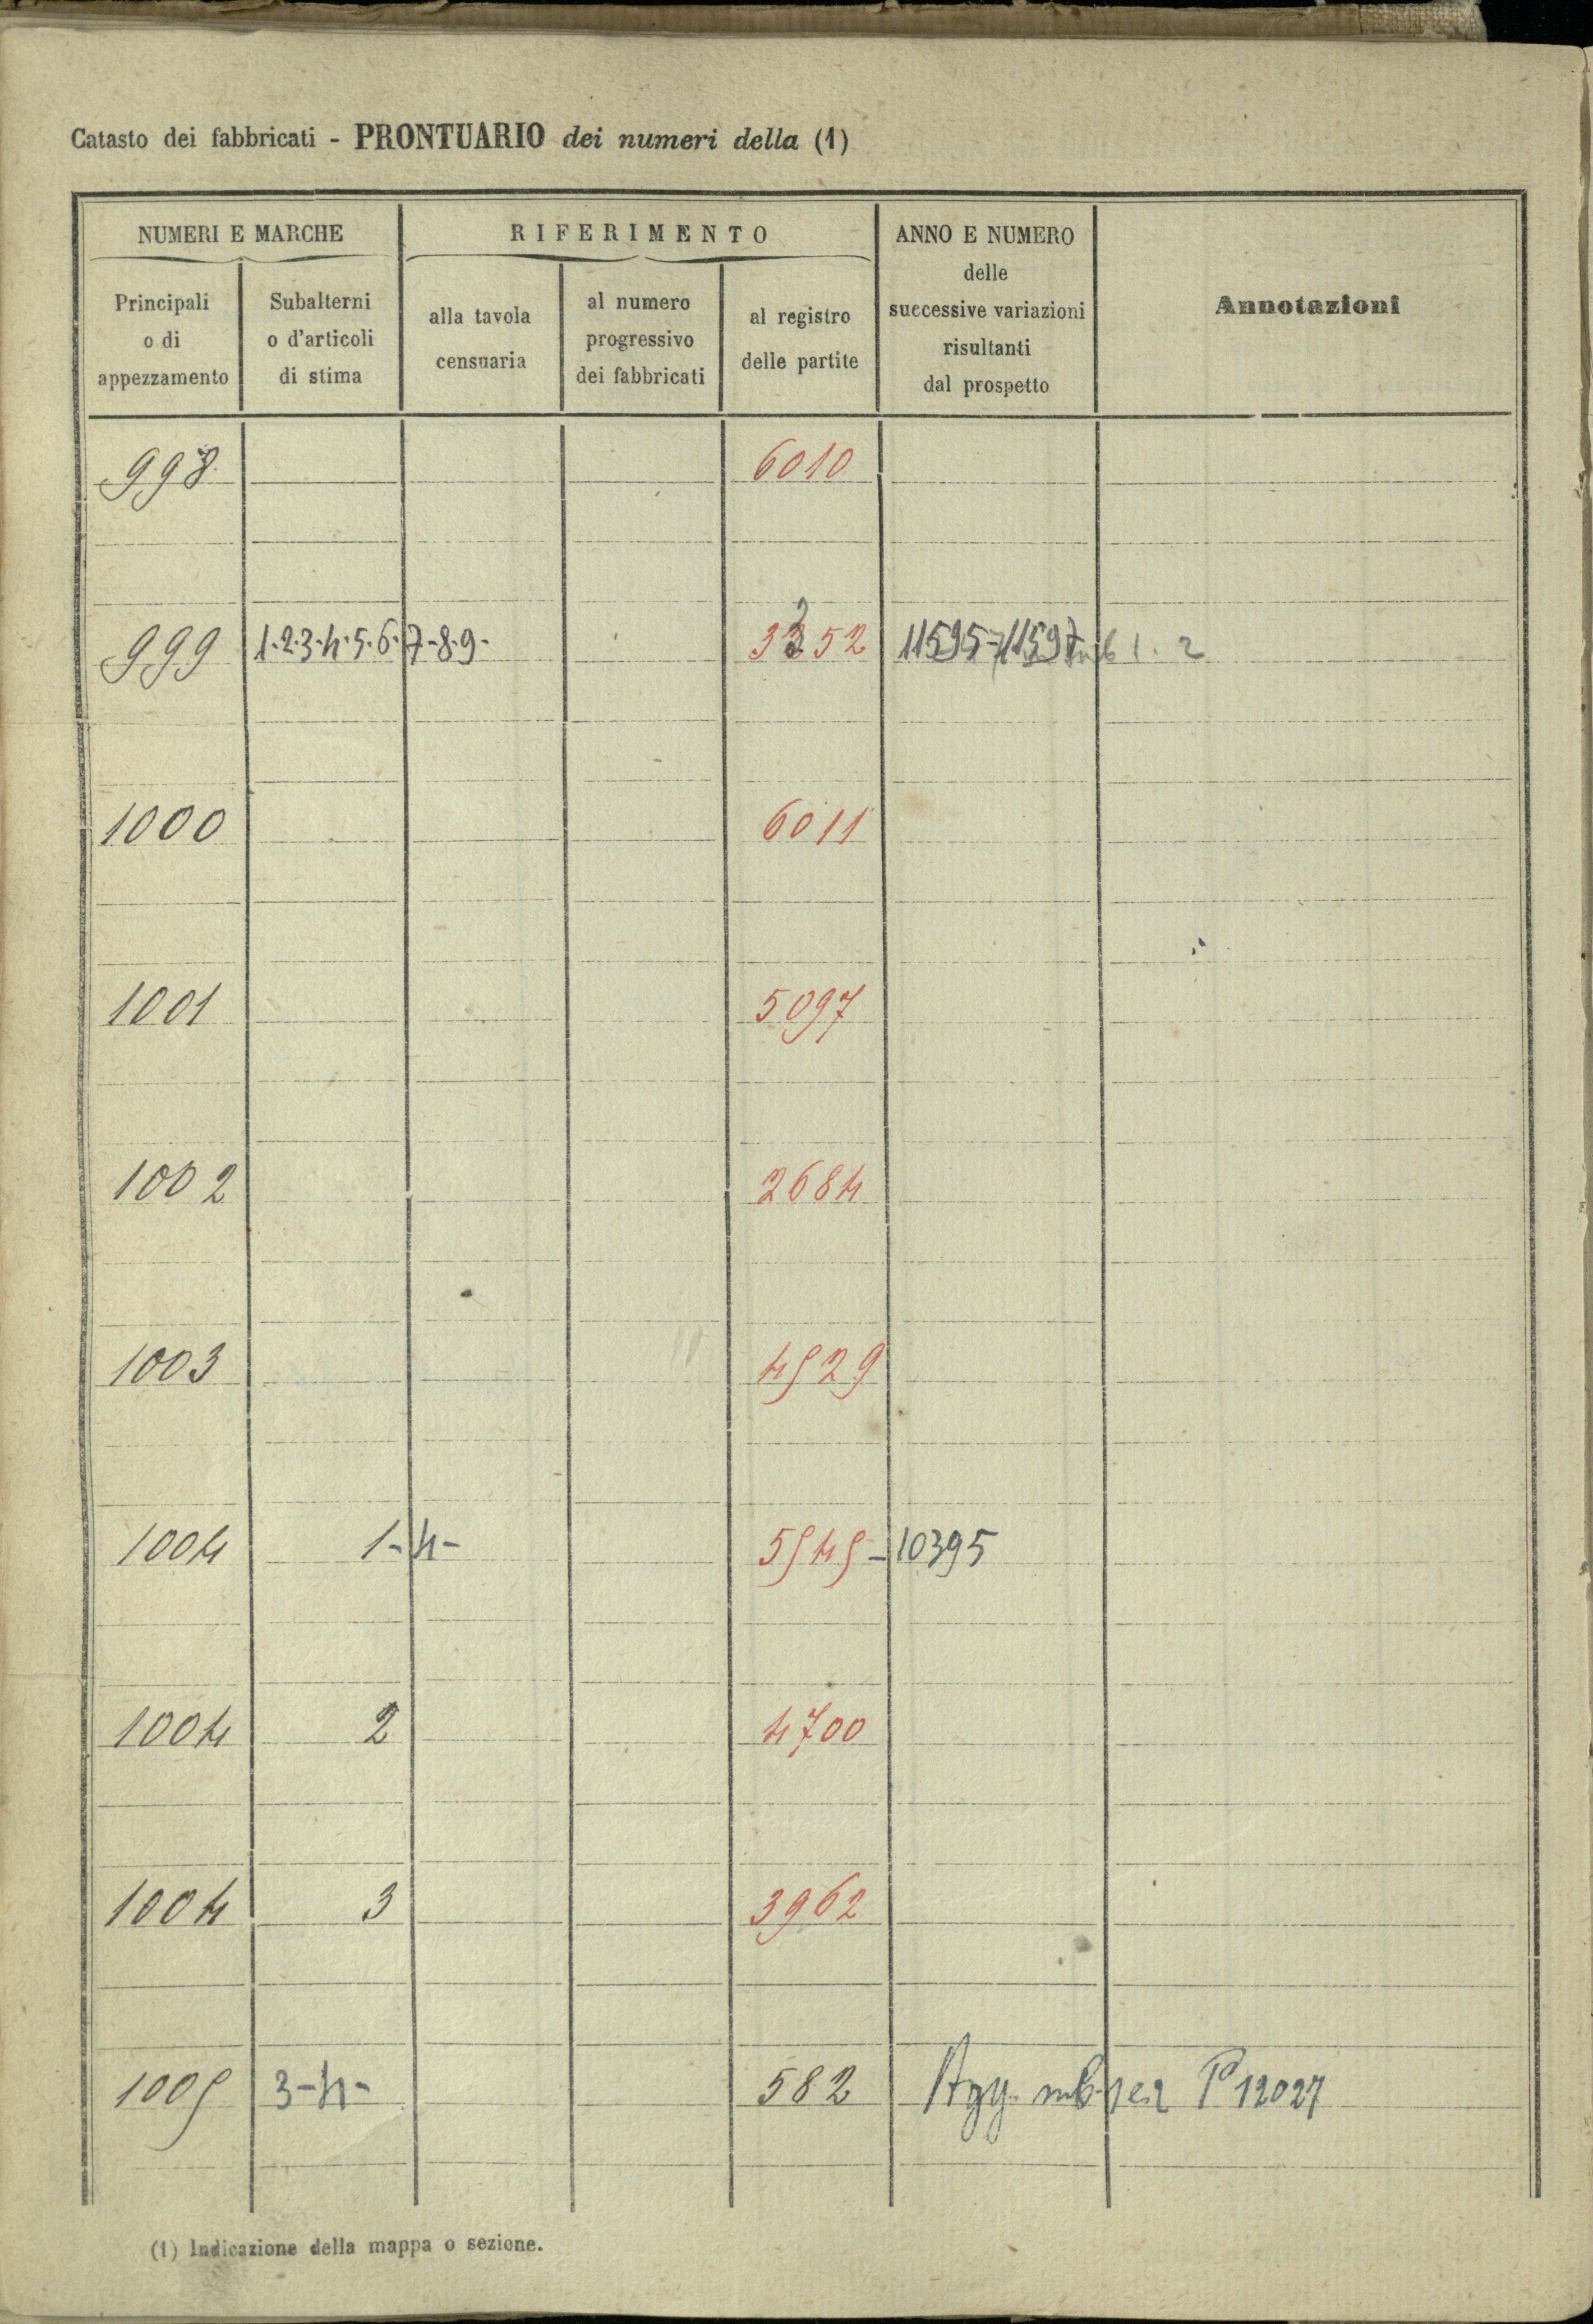 Catasto dei fabbricati - PRONTUARIO dei numeri della (1)
NUMERI E MARCHE
RIFERIMENTO
ANNO E NUMERO
delle
successive variazioni
risultanti
dal prospetto
Annotazioni
Principali
o di
appezzamento
Subalterni
o d'articoli
di stima
alla tavola
censuaria
al numero
progressivo
dei fabbricati
al registro
delle partite
998 6010
999 1.2.3.4.5.6.7-8.9- 3352 11595-11597 1. 2
1000 6011
1001 5097
1002 2684
1003 4529
1004 1-4- 5545-10395
1004 2 4700
1004 3 3962
1005 3-4- 582 Agg. sub 1 e 2 P 12027
(1) Indicazione della mappa o sezione.